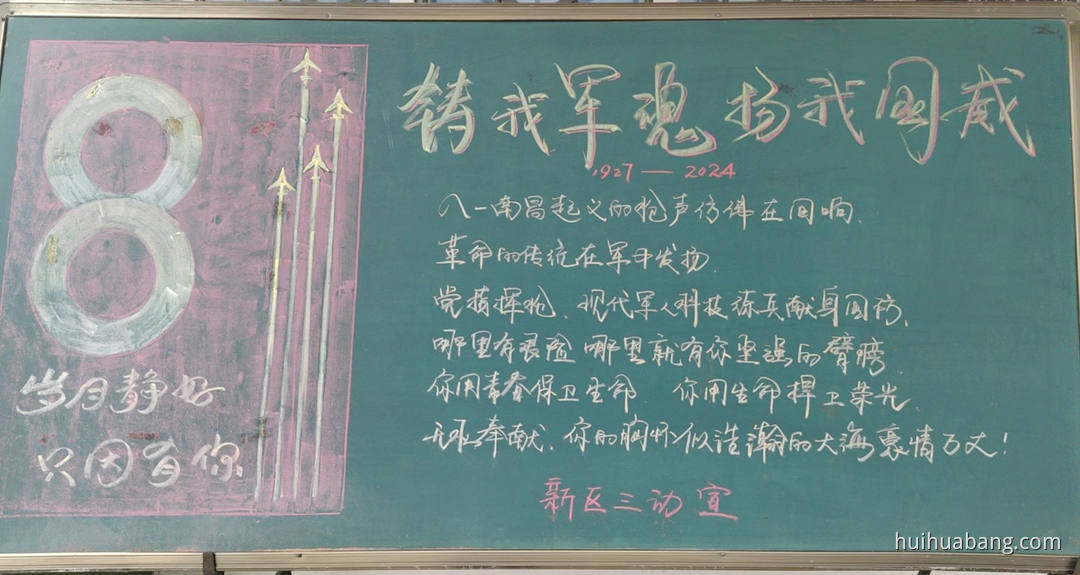 8
岁月静好
只因有你
铸我军魂 扬我国威
1927—2024
八一南昌起义的枪声仿佛在回响.
革命的传统在军中发扬.
党指挥枪、现代军人科技练兵献身国防、
哪里有艰险 哪里就有你坚强的臂膀.
你用青春保卫生命 你用生命捍卫荣光、
无私奉献、你的胸怀似浩瀚的大海豪情万丈!
新区三动宣
huihuabang.com